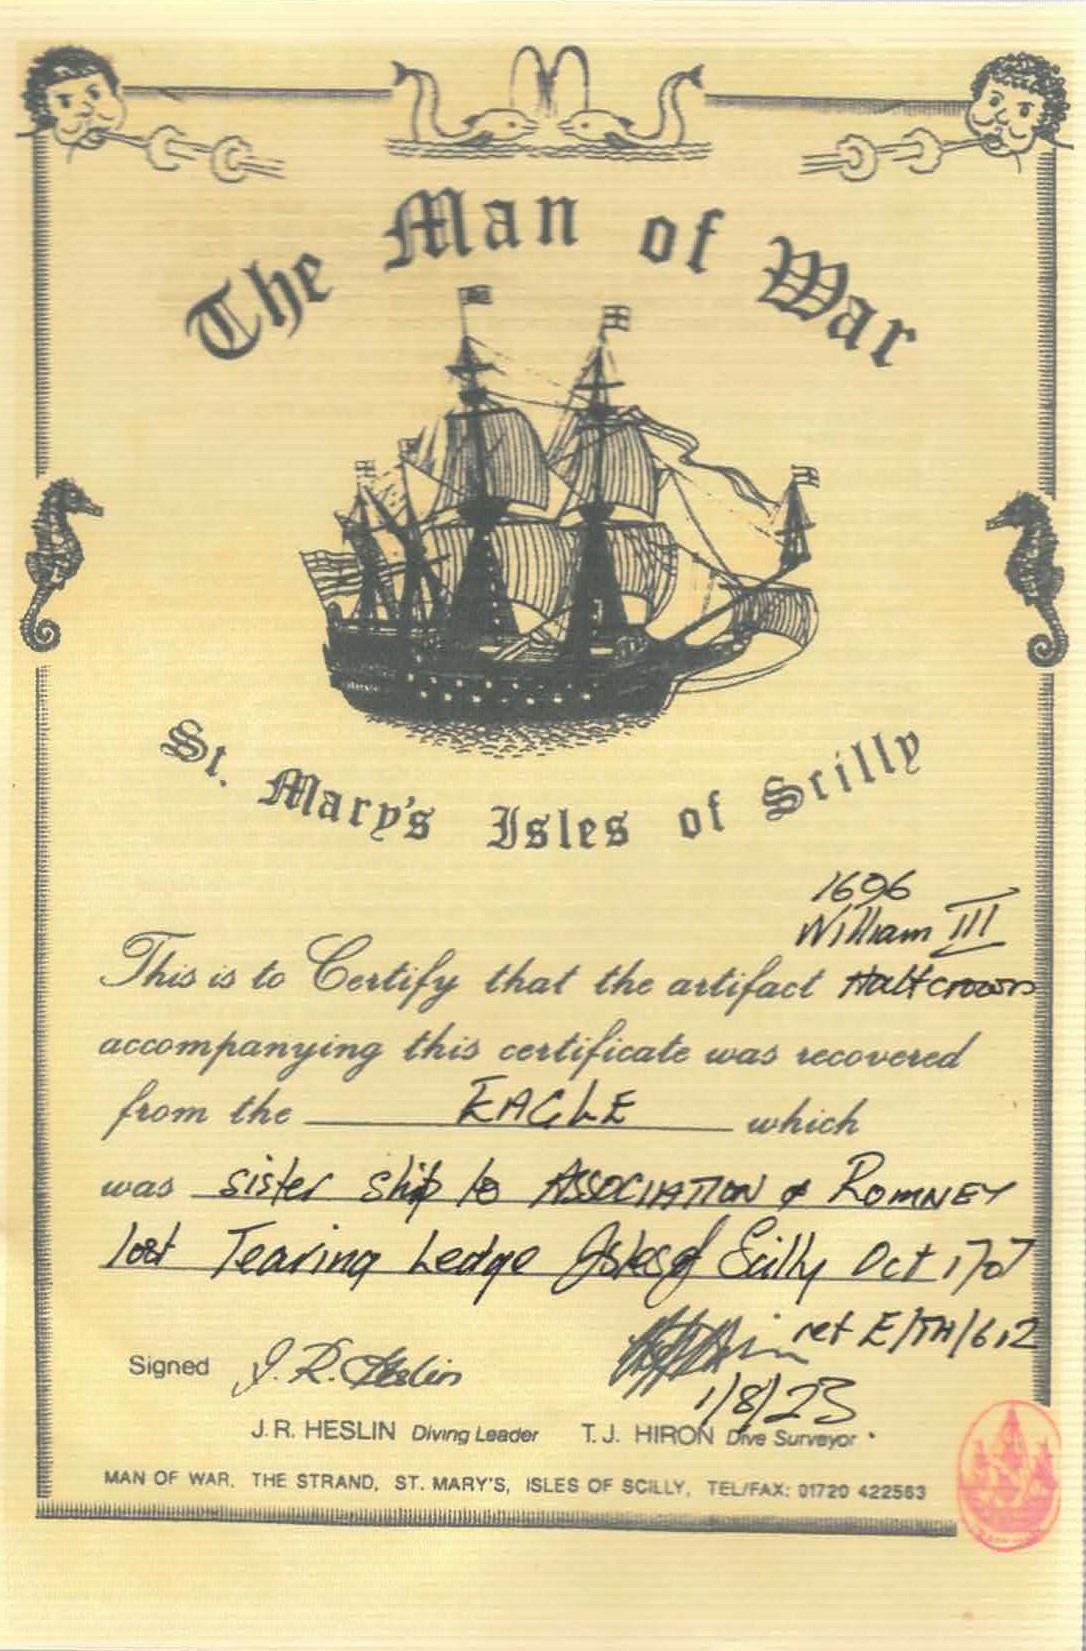 The Man of War
St. Mary's Isles of Scilly
1696
William III
This is to Certify that the artifact Halfcrown
accompanying this certificate was recovered
from the EAGLE which
was sister ship to ASSOCIATION & ROMNEY
lost Tearing Ledge Isles of Scilly Oct 1707
ref E/TH/612
Signed J.R. Heslin
1/8/23
J.R. HESLIN Diving Leader T.J. HIRON Dive Surveyor
MAN OF WAR, THE STRAND, ST. MARY'S, ISLES OF SCILLY, TEL/FAX: 01720 422563